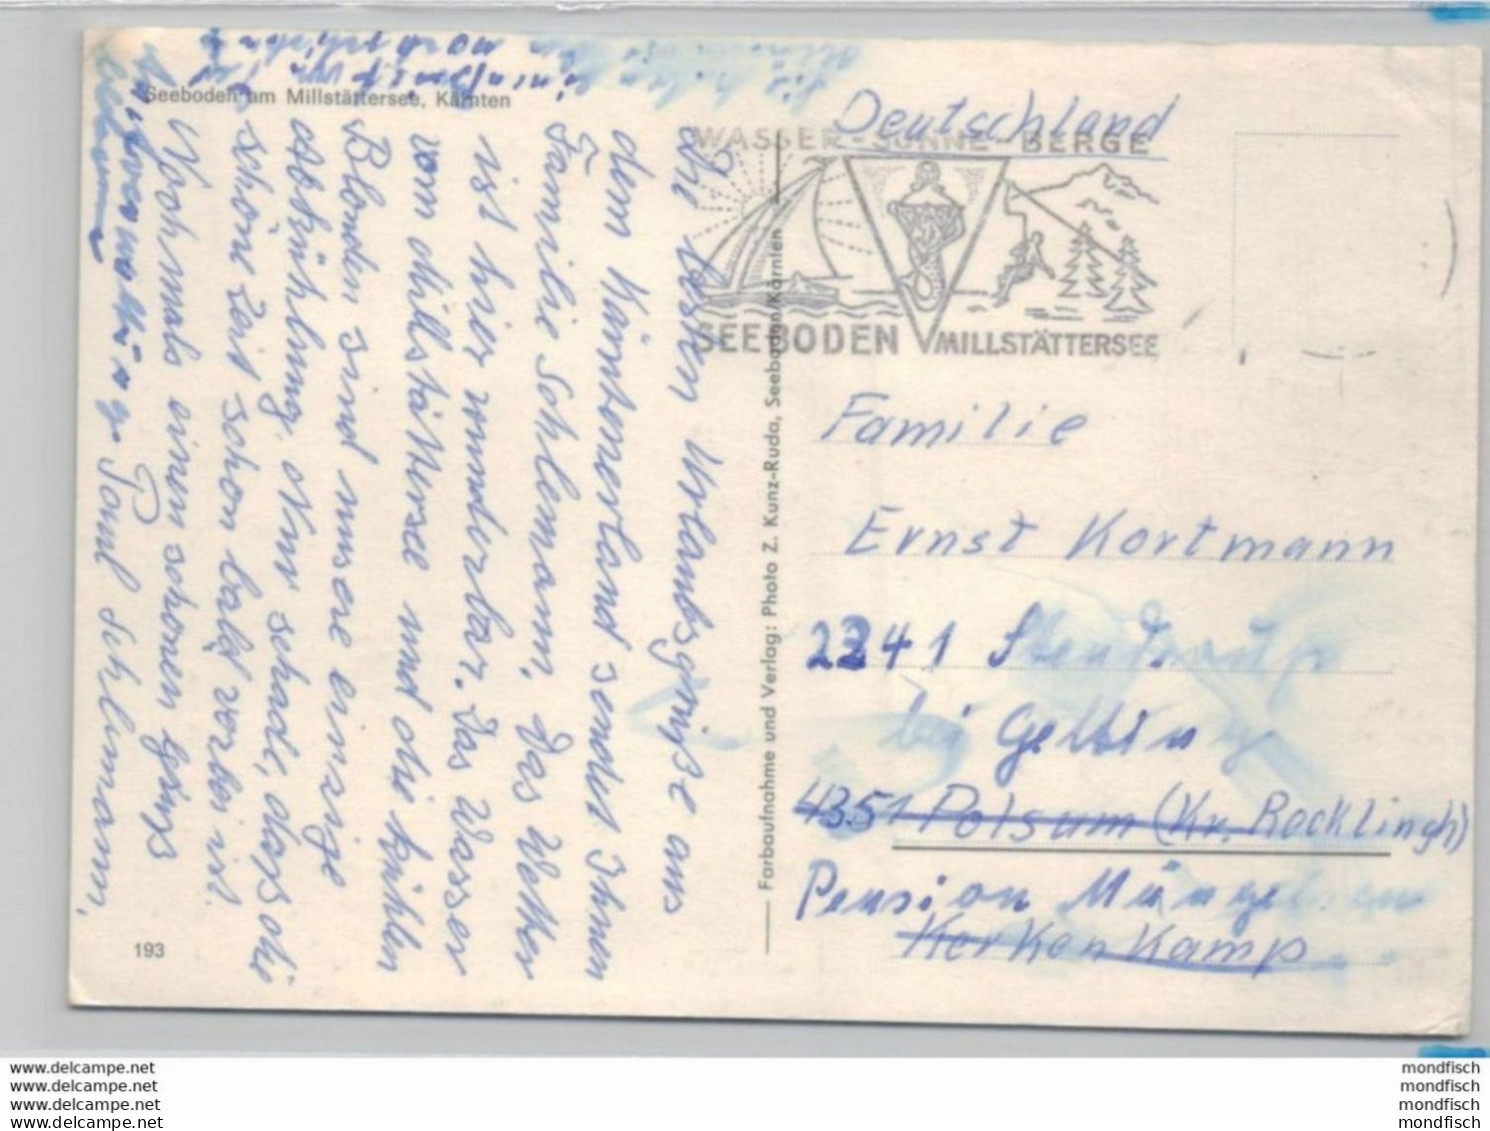 Seeboden am Millstättersee, Kärnten
Die besten Urlaubsgrüße aus
dem Kärntnerland sendet Ihnen
Familie Schlemann, Das Wetter
ist hier wunderbar. Das Wasser
vom Millstättersee und die kühlen
Blonden sind unsere einzige
Abkühlung. Nur schade, dass die
schöne Zeit schon bald vorbei ist.
Nochmals einen schönen Gruß
Paul Schlemann,
193
Farbaufnahme und Verlag: Photo Z. Kunz-Ruda, Seeboden/Kärnten
Deutschland
WASSER-SONNE-BERGE
SEEBODEN MILLSTÄTTERSEE
Familie
Ernst Kortmann
2341
bei Gelting
4351 Polsum (Kr. Recklingh)
Pension
Kerkenkamp
www.delcampe.net
www.delcampe.net
www.delcampe.net
www.delcampe.net
mondfisch
mondfisch
mondfisch
mondfisch